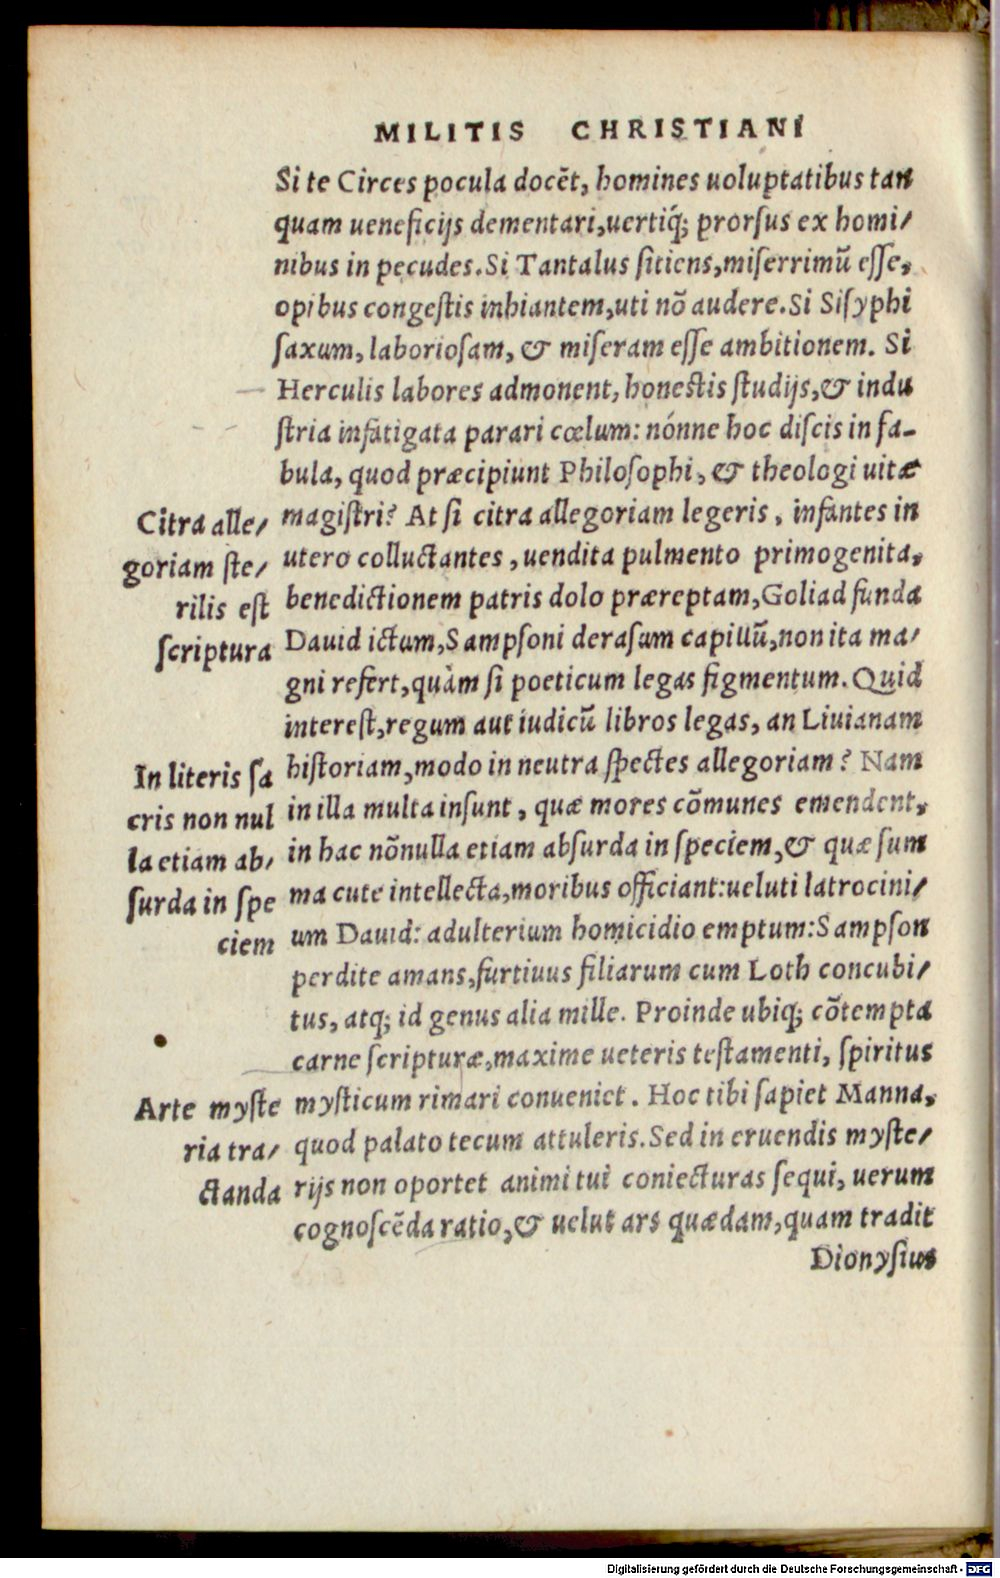 MILITIS CHRISTIANI
Si te Circes pocula docẽt, homines uoluptatibus tan
quam ueneficijs dementari, uertiq́; prorsus ex homi/
nibus in pecudes. Si Tantalus sitiens, miserrimũ esse,
opibus congestis inhiantem, uti nõ audere. Si Sisyphi
saxum, laboriosam, & miseram esse ambitionem. Si
Herculis labores admonent, honestis studijs, & indu
stria infatigata parari cœlum: nónne hoc discis in fa-
bula, quod præcipiunt Philosophi, & theologi uitæ
magistri? At si citra allegoriam legeris, infantes in
utero colluctantes, uendita pulmento primogenita,
benedictionem patris dolo præreptam, Goliad funda
Dauid ictum, Sampsoni derasum capillũ, non ita ma/
gni refert, quàm si poeticum legas figmentum. Quid
interest, regum aut iudicũ libros legas, an Liuianam
historiam, modo in neutra spectes allegoriam? Nam
in illa multa insunt, quæ mores cõmunes emendent,
in hac nõnulla etiam absurda in speciem, & quæ sum
ma cute intellecta, moribus officiant: ueluti latrocini/
um Dauid: adulterium homicidio emptum: Sampson
perdite amans, furtiuus filiarum cum Loth concubi/
tus, atq; id genus alia mille. Proinde ubiq; cõtempta
carne scripturæ, maxime ueteris testamenti, spiritus
mysticum rimari conueniet. Hoc tibi sapiet Manna,
quod palato tecum attuleris. Sed in eruendis myste/
rijs non oportet animi tui coniecturas sequi, uerum
cognoscẽda ratio, & uelut ars quædam, quam tradit
Dionysius
Citra alle/
goriam ste/
rilis est
scriptura
In literis sa
cris non nul
la etiam ab/
surda in spe
ciem
Arte myste
ria tra/
ctanda
Digitalisierung gefördert durch die Deutsche Forschungsgemeinschaft - DFG